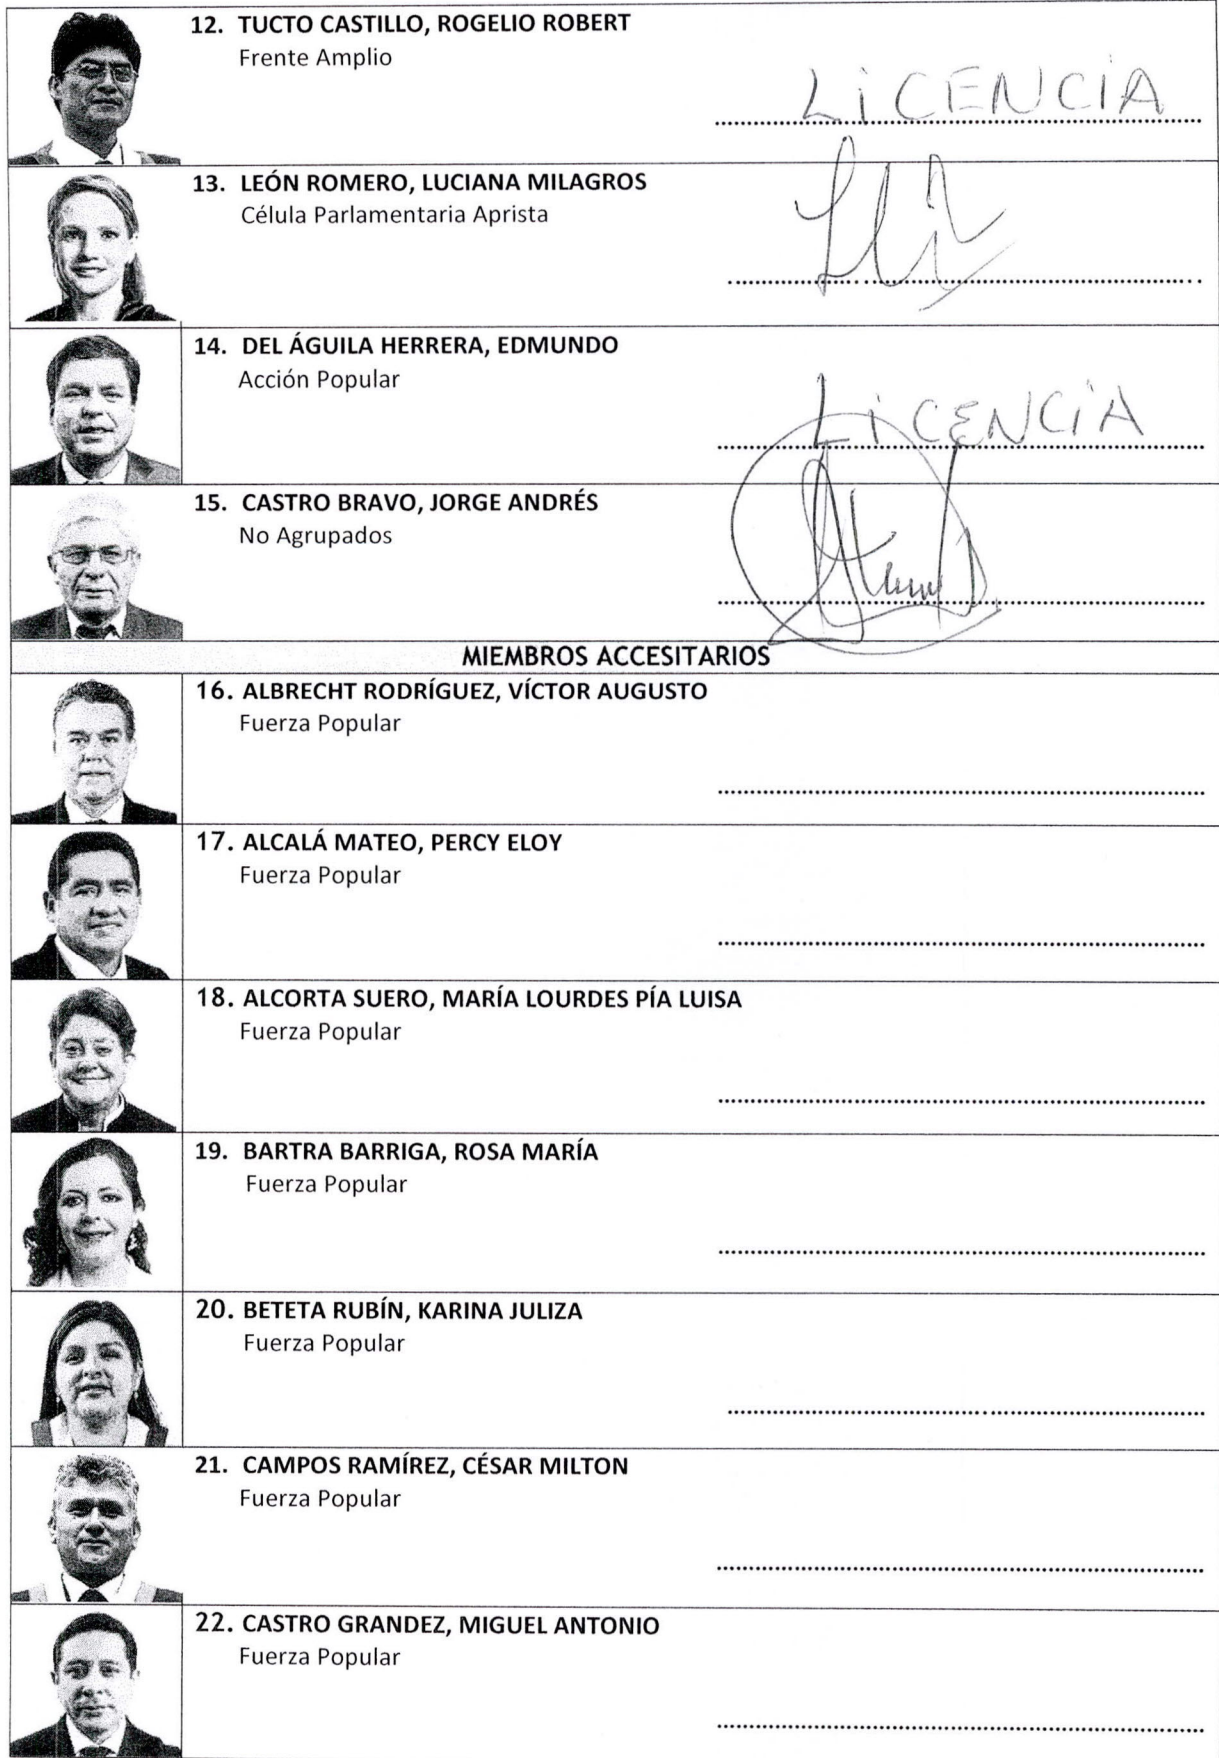 12. TUCTO CASTILLO, ROGELIO ROBERT
Frente Amplio
LiCENCiA
13. LEÓN ROMERO, LUCIANA MILAGROS
Célula Parlamentaria Aprista
14. DEL ÁGUILA HERRERA, EDMUNDO
Acción Popular
LiCENCiA
15. CASTRO BRAVO, JORGE ANDRÉS
No Agrupados
MIEMBROS ACCESITARIOS
16. ALBRECHT RODRÍGUEZ, VÍCTOR AUGUSTO
Fuerza Popular
17. ALCALÁ MATEO, PERCY ELOY
Fuerza Popular
18. ALCORTA SUERO, MARÍA LOURDES PÍA LUISA
Fuerza Popular
19. BARTRA BARRIGA, ROSA MARÍA
Fuerza Popular
20. BETETA RUBÍN, KARINA JULIZA
Fuerza Popular
21. CAMPOS RAMÍREZ, CÉSAR MILTON
Fuerza Popular
22. CASTRO GRANDEZ, MIGUEL ANTONIO
Fuerza Popular